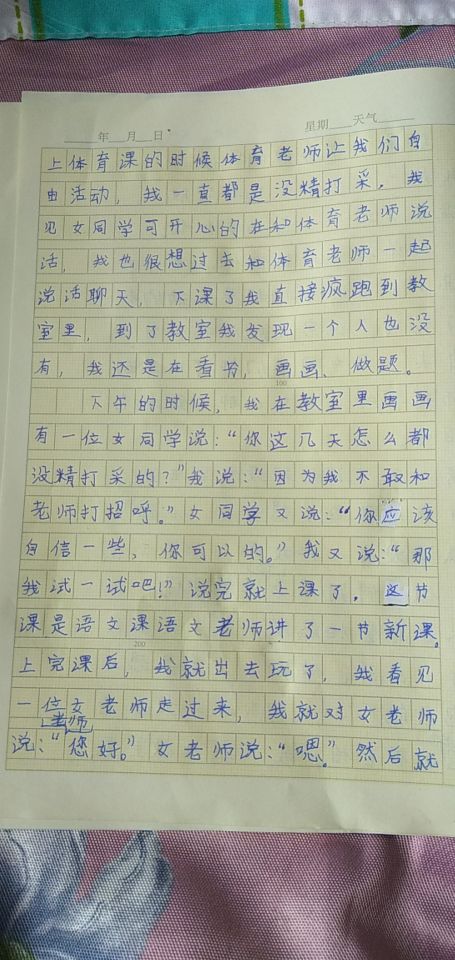 年 月 日 星期 天气
上体育课的时候体育老师让我们自
由活动，我一直都是没精打采，我
见女同学可开心的在和体育老师说
话，我也很想过去和体育老师一起
说话聊天，下课了我直接疯跑到教
室里，到了教室我发现一个人也没
有，我还是在看书，画画、做题。
100
下午的时候，我在教室里画画
有一位女同学说：“你这几天怎么都
没精打采的？”我说：“因为我不敢和
老师打招呼。”女同学又说：“你应该
自信一些，你可以的。”我又说：“那
我试一试吧！”说完就上课了。这节
课是语文课语文老师讲了一节新课。
200
上完课后，我就出去玩了，我看见
一位女老师走过来，我就对女老师
老师
说：“您好。”女老师说：“嗯。”然后就